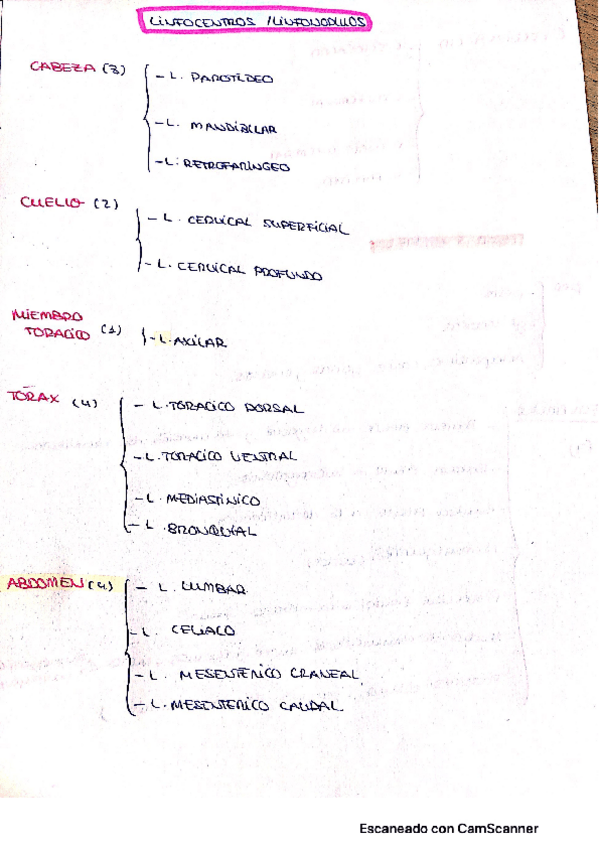 LINFOCENTROS / LINFONODULOS
CABEZA (3)
- L. PAROTIDEO
- L. MANDIBULAR
- L. RETROFARINGEO
CUELLO (2)
- L. CERVICAL SUPERFICIAL
- L. CERVICAL PROFUNDO
MIEMBRO
TORACICO (1)
- L. AXILAR
TORAX (4)
- L. TORACICO DORSAL
- L. TORACICO VENTRAL
- L. MEDIASTINICO
- L. BRONQUIAL
ABDOMEN (4)
- L. LUMBAR
- L. CELIACO
- L. MESENTERICO CRANEAL
- L. MESENTERICO CAUDAL
Escaneado con CamScanner